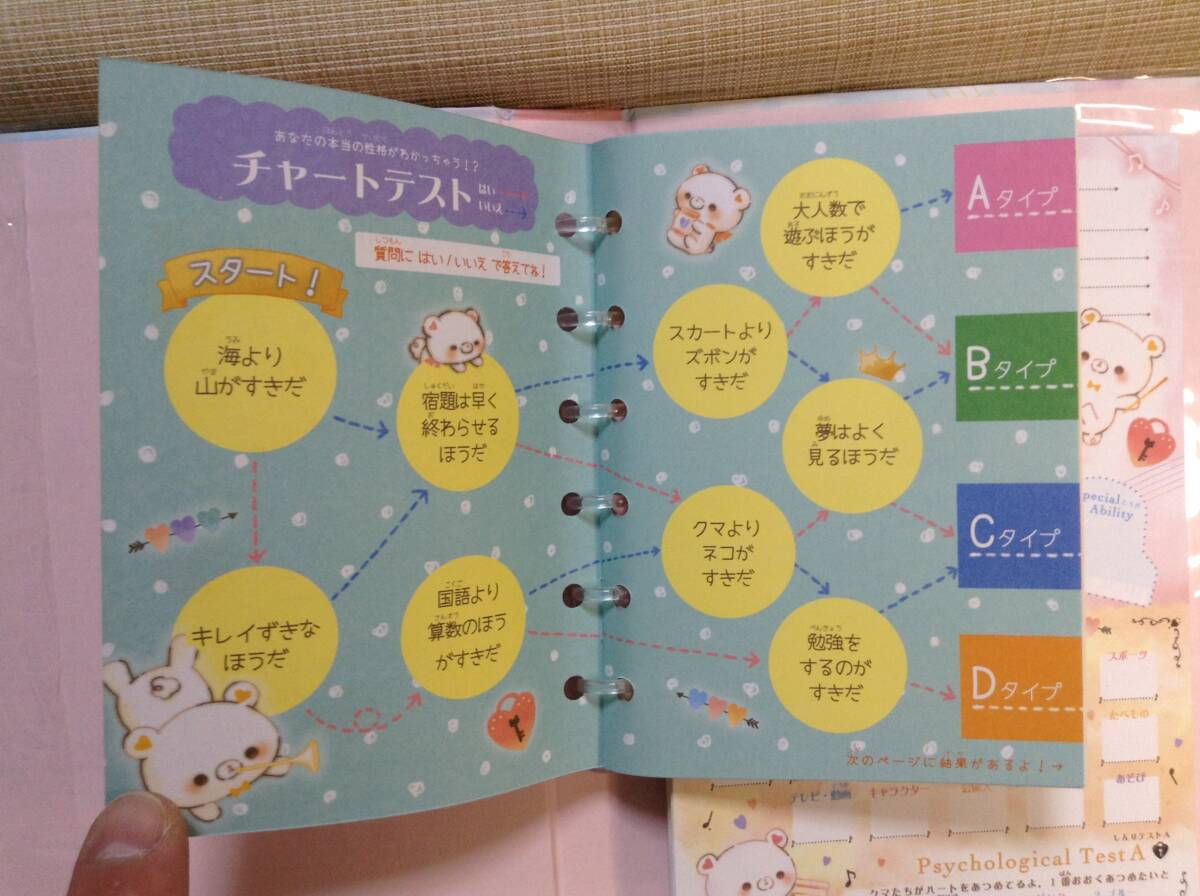 あなたの本当の性格がわかっちゃう!?
チャートテスト
はい
いいえ
質問に はい/いいえ で答えてね!
スタート!
海より
山がすきだ
宿題は早く
終わらせる
ほうだ
キレイずきな
ほうだ
国語より
算数のほう
がすきだ
大人数で
遊ぶほうが
すきだ
スカートより
ズボンが
すきだ
夢はよく
見るほうだ
クマより
ネコが
すきだ
勉強を
するのが
すきだ
Aタイプ
Bタイプ
Cタイプ
Dタイプ
次のページに結果があるよ!→
pecial
Ability
スポーツ
たべもの
あそび
テレビ・動画
キャラクター
しんりテストA
Psychological Test A
クマたちがハートをあつめてるよ。1番おおくあつめたいと